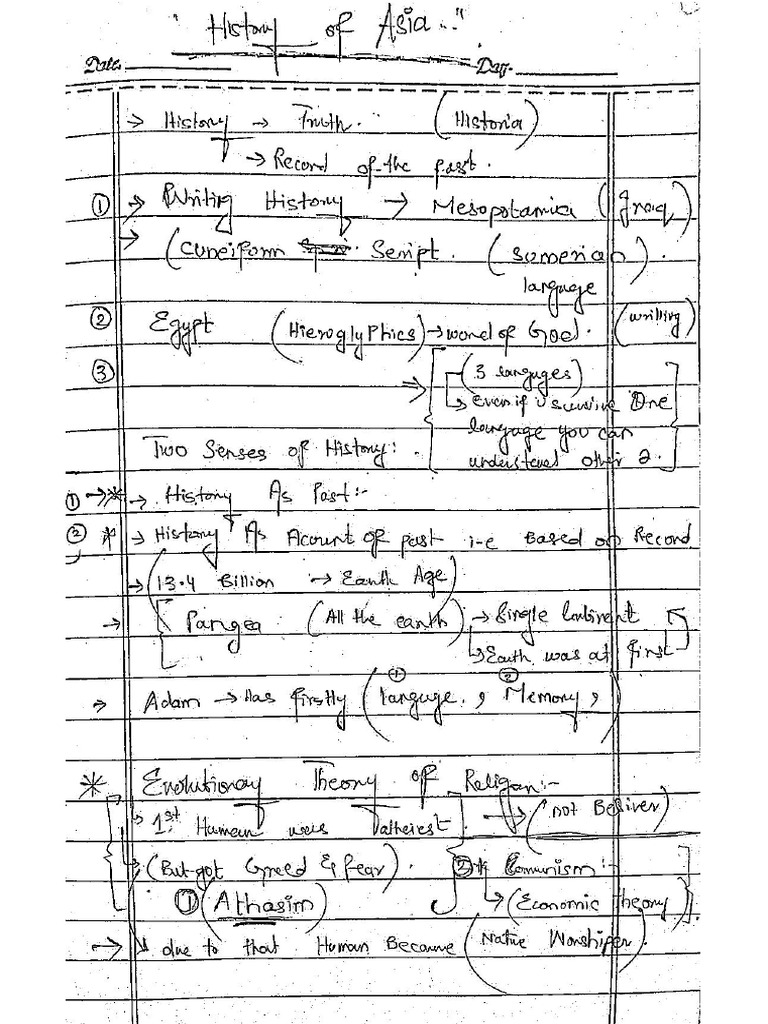 "History of Asia..."
Date. Day.
→ History → Truth.. (Historia)
→ Record of the past.
① → Writing History → Mesopotamica (Iraq)
→ (Cuneiform Script. (Sumerian) .
language
② Egypt (Hieroglyphics) → word of God. (writting)
③ ⇒ (3 languges)
→ Even if u survive One
language you can
understand other 2.
Two Senses of History:
① → * → History As Past:-
② * → History As Acount of past i-e Based on Record
→ (13.4 Billion → Earth Age)
→ [Pangea (All the earth) → Single Continent
→ Earth was at first
→ Adam → Has firstly (① languge, ② Memory,)
* Evolutionary Theory of Religon:-
→ 1st Human was atheiest. → (not Beliver)
→ (But got Greed & fear). ② * Communism:-
① (Athasim) → (Economic Theory)
→ due to that Human Became (Native Worshiper.